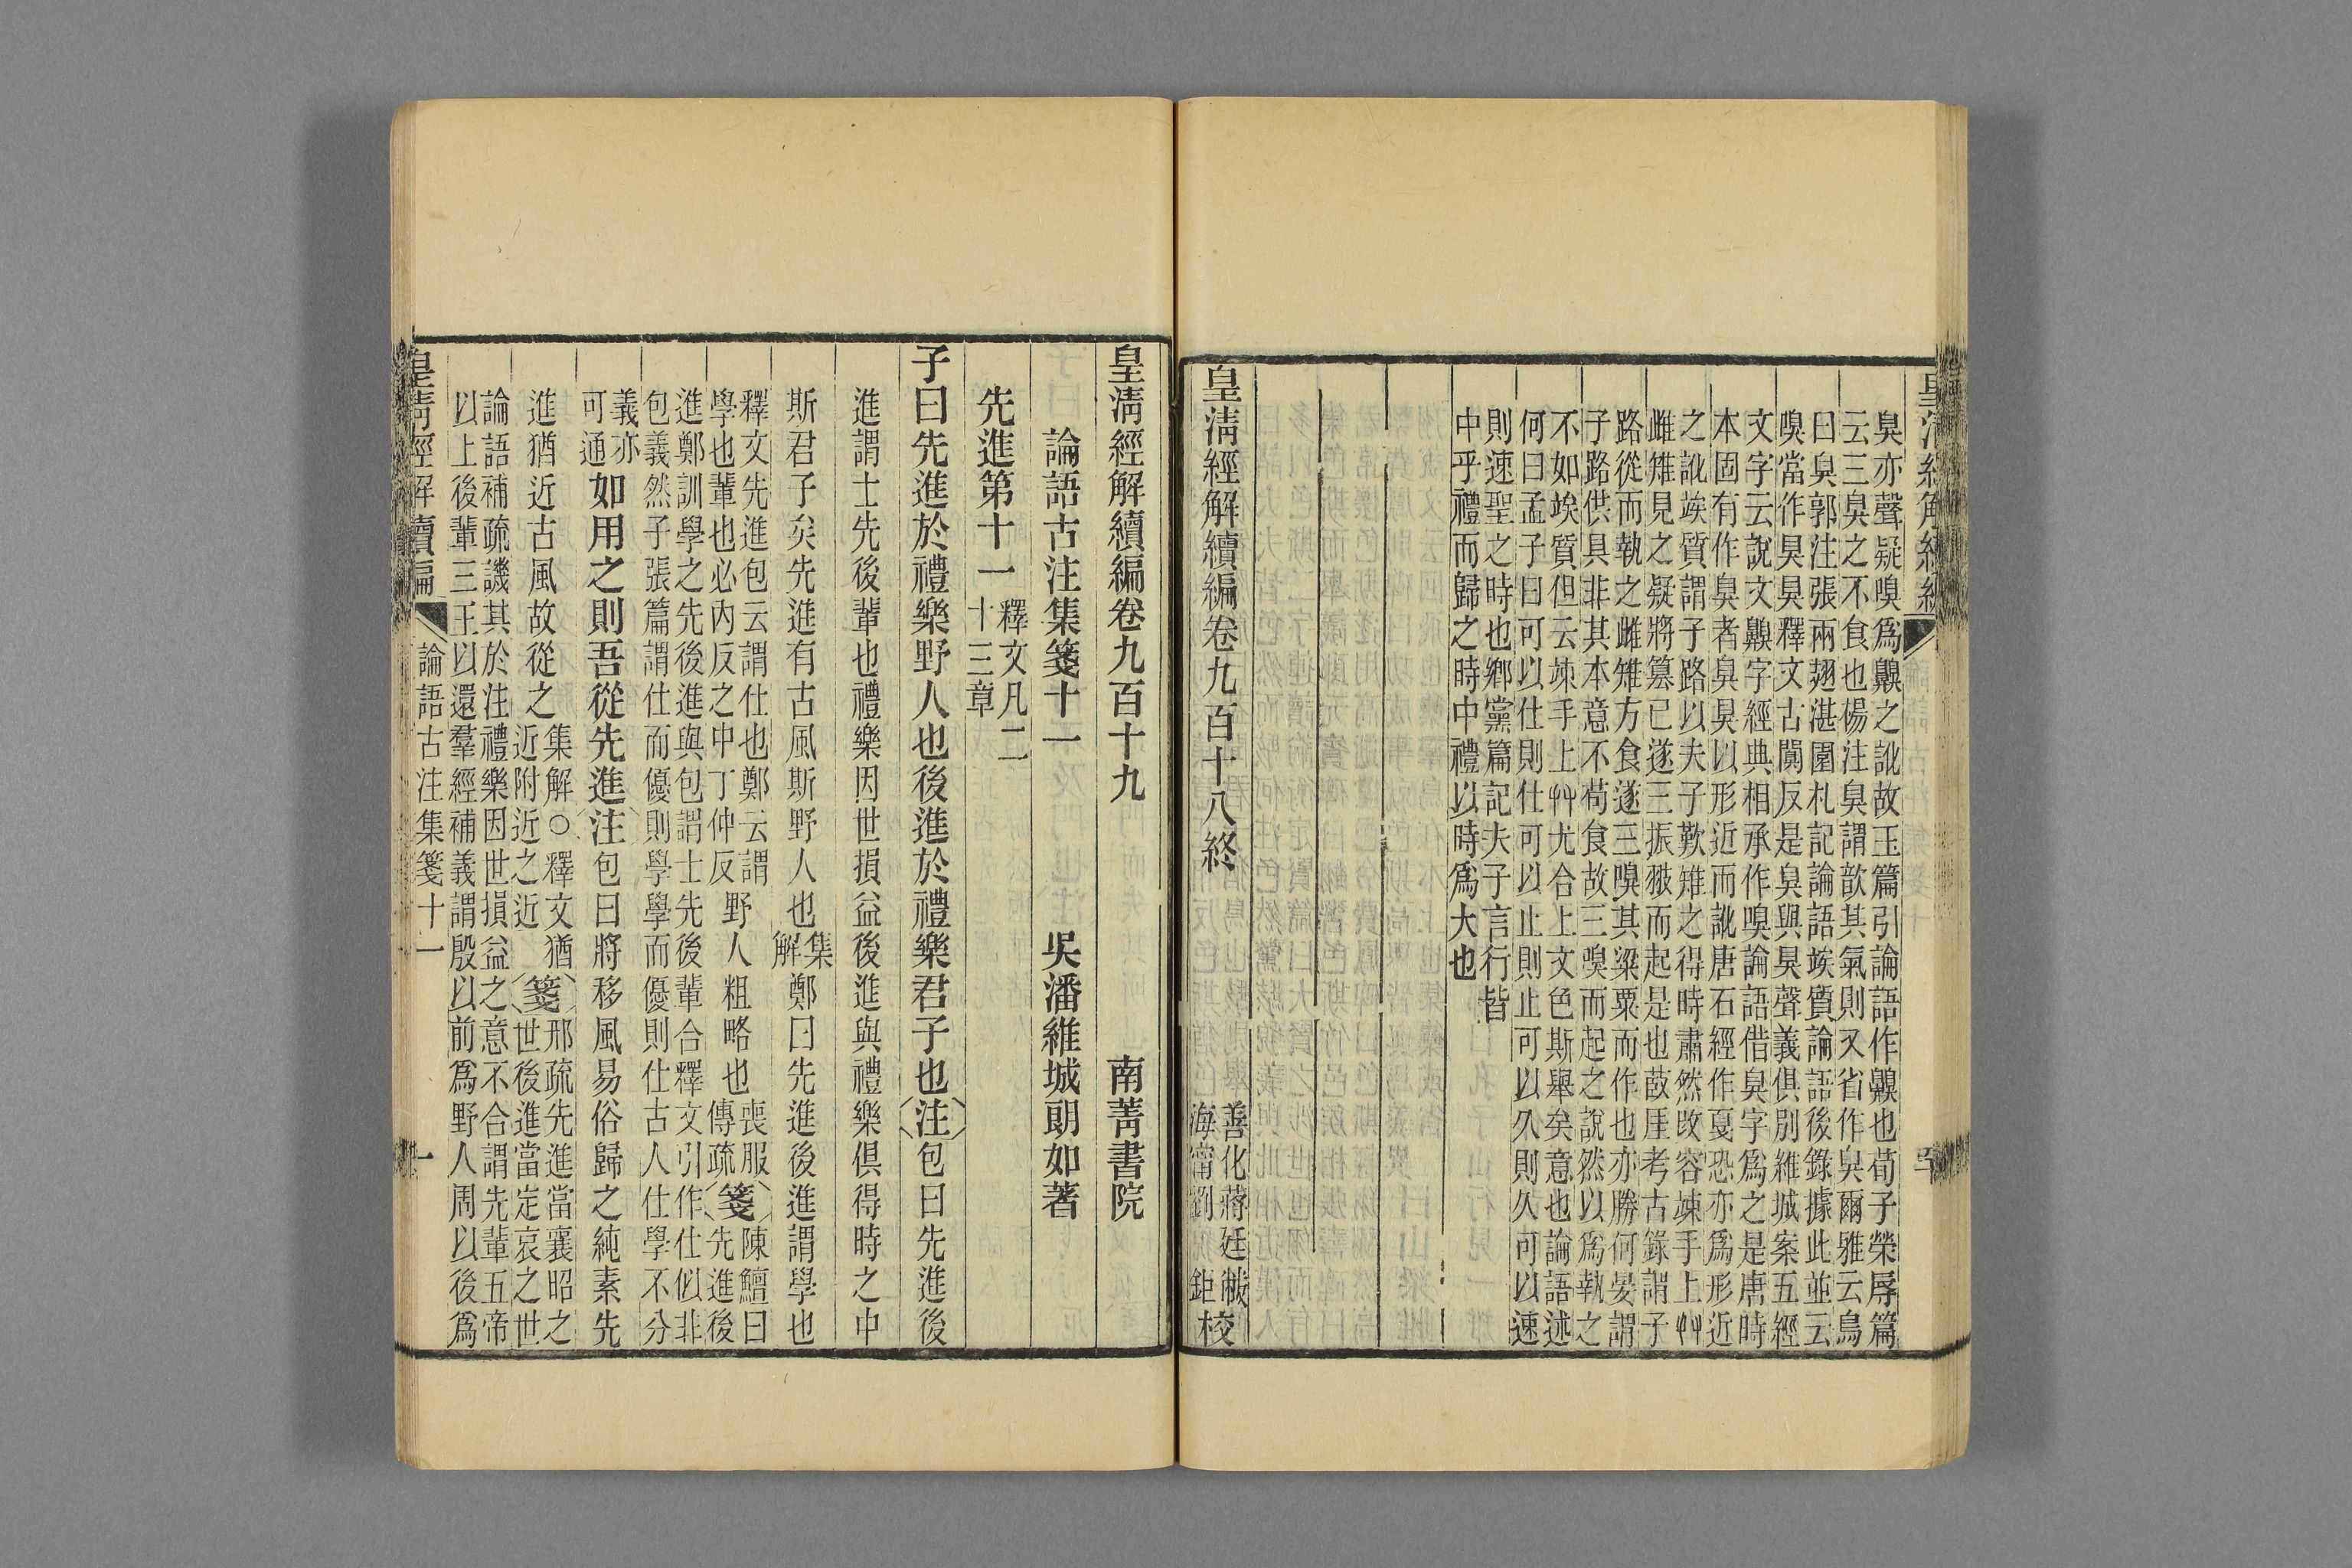 臭亦聲疑嗅爲齅之訛故玉篇引論語作齅也荀子榮辱篇
云三臭之不食也楊注臭謂歆其氣則又省作臭爾雅云鳥
曰臭郭注張兩翅湛園札記論語竢質論語後錄據此並云
嗅當作臭臭釋文古闃反是臭與狊聲義俱別維城案五經
文字云說文齅字經典相承作嗅論語借臭字爲之是唐時
本固有作臭者臭狊以形近而訛唐石經作戛恐亦爲形近
之訛竢質謂子路以夫子歎雉之得時肅然改容竦手上
雌雉見之疑將篡已遂三振翅而起是也
路從而執之雌雉方食遂三嗅其粱粟而作也亦勝何晏謂
子路供具非其本意不苟食故三嗅而起之說然以爲執之
不如竢質但云竦手上尤合上文色斯舉矣意也論語述
何曰孟子曰可以仕則仕可以止則止可以久則久可以速
則速聖之時也鄉黨篇記夫子言行皆
中乎禮而歸之時中禮以時爲大也
皇淸經解續編卷九百十八終
善化蔣廷黻
海甯劉 鉅校
皇淸經解續編卷九百十九
南菁書院
論語古注集箋十一
吳潘維城朗如著
先進第十一
釋文凡二
十三章
子曰先進於禮樂野人也後進於禮樂君子也注包曰先進後
進謂士先後輩也禮樂因世損益後進與禮樂俱得時之中
斯君子矣先進有古風斯野人也集解鄭曰先進後進謂學也
釋文先進包云謂仕也鄭云謂
學也輩也必內反之中丁仲反
野人粗略也
喪服
傳疏
箋
陳鱣曰
先進後
進鄭訓學之先後進與包謂士先後輩合釋文引作仕似非
包義然子張篇謂仕而優則學學而優則仕古人仕學不分
義亦
可通
如用之則吾從先進注包曰將移風易俗歸之純素先
進猶近古風故從之
集解○釋文猶
近附近之近
箋
邢疏先進當襄昭之
世後進當定哀之世
論語補疏譏其於注禮樂因世損益之意不合謂先輩五帝
以上後輩三王以還羣經補義謂殷以前爲野人周以後爲
皇淸經解續編
論語古注集箋十一
一